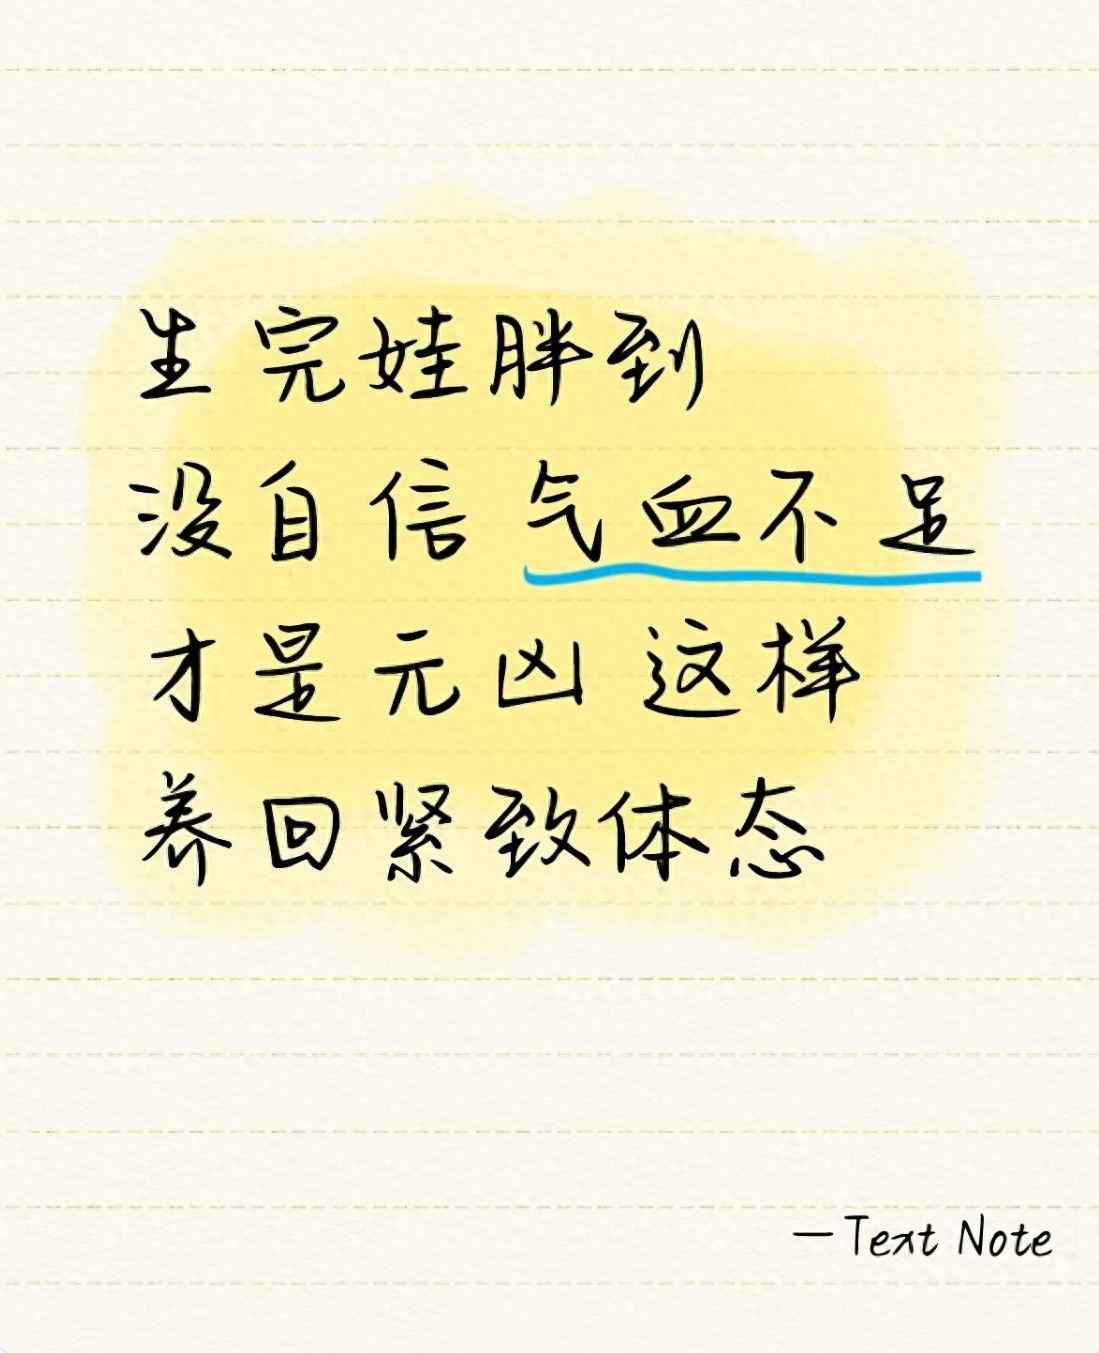 生完娃胖到
没自信 气血不足
才是元凶 这样
养回紧致体态
— Text Note